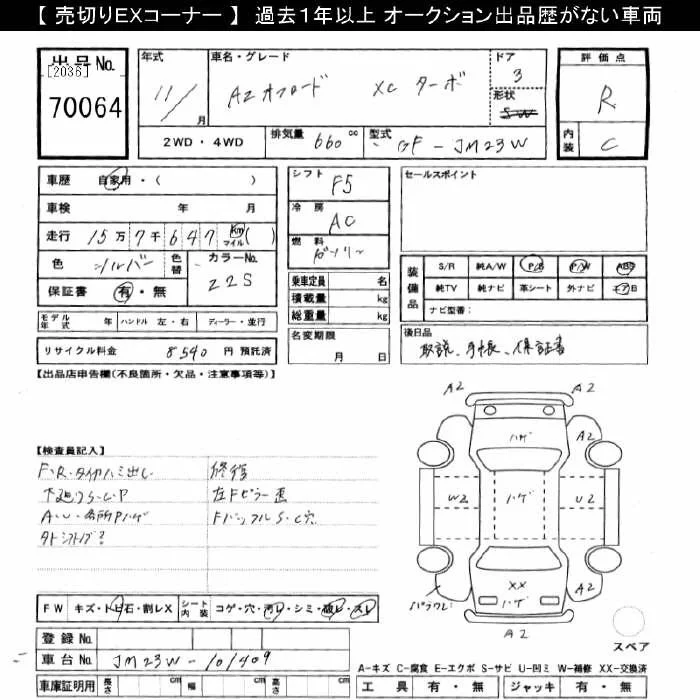 【 売切りEXコーナー 】 過去１年以上 オークション出品歴がない車両
出品No.
[2036]
70064
年式
11/
月
車名・グレード
AZオフロード XC ターボ
ドア
3
形状
SW
評価点
R
内装
C
2WD・4WD
排気量 660 cc
型式
GF-JM23W
車歴 自家用・( )
車検 年 月
走行 15万7千647 Km マイル( )
色 シルバー 色替
カラーNo.
22S
保証書 有・無
シフト
F5
冷房
AC
燃料
ガソリン
乗車定員 名
積載量 kg
総重量 kg
名変期限
月 日
セールスポイント
装備品
S/R 純A/W P/S P/W ABS
純TV 純ナビ 革シート 外ナビ エアB
ナビ型番:
後日品
取説、手帳、保証書
モデル年式 年 ハンドル 左・右 ディーラー・並行
リサイクル料金 8540 円 預託済
【出品店申告欄(不良箇所・欠品・注意事項等)】
【検査員記入】
F、R、タイヤハミ出し
下廻りS、C、P
A・U・各所Pハゲ
修復
左Fピラー歪
FバッフルS・C穴
FW キズ・トビ石・割レX
シート内装 コゲ・穴・汚レ・シミ・破レ・スレ
登録No.
車台No. JM23W-101409
車庫証明用 長さ cm 幅 cm 高さ cm
A2
A2
A2
ハゲ
W2
ハゲ
U2
XX
ハゲ
A2
A2
スペア
A-キズ C-腐食 E-エクボ S-サビ U-凹ミ W-補修 XX-交換済
工具 有・無 ジャッキ 有・無